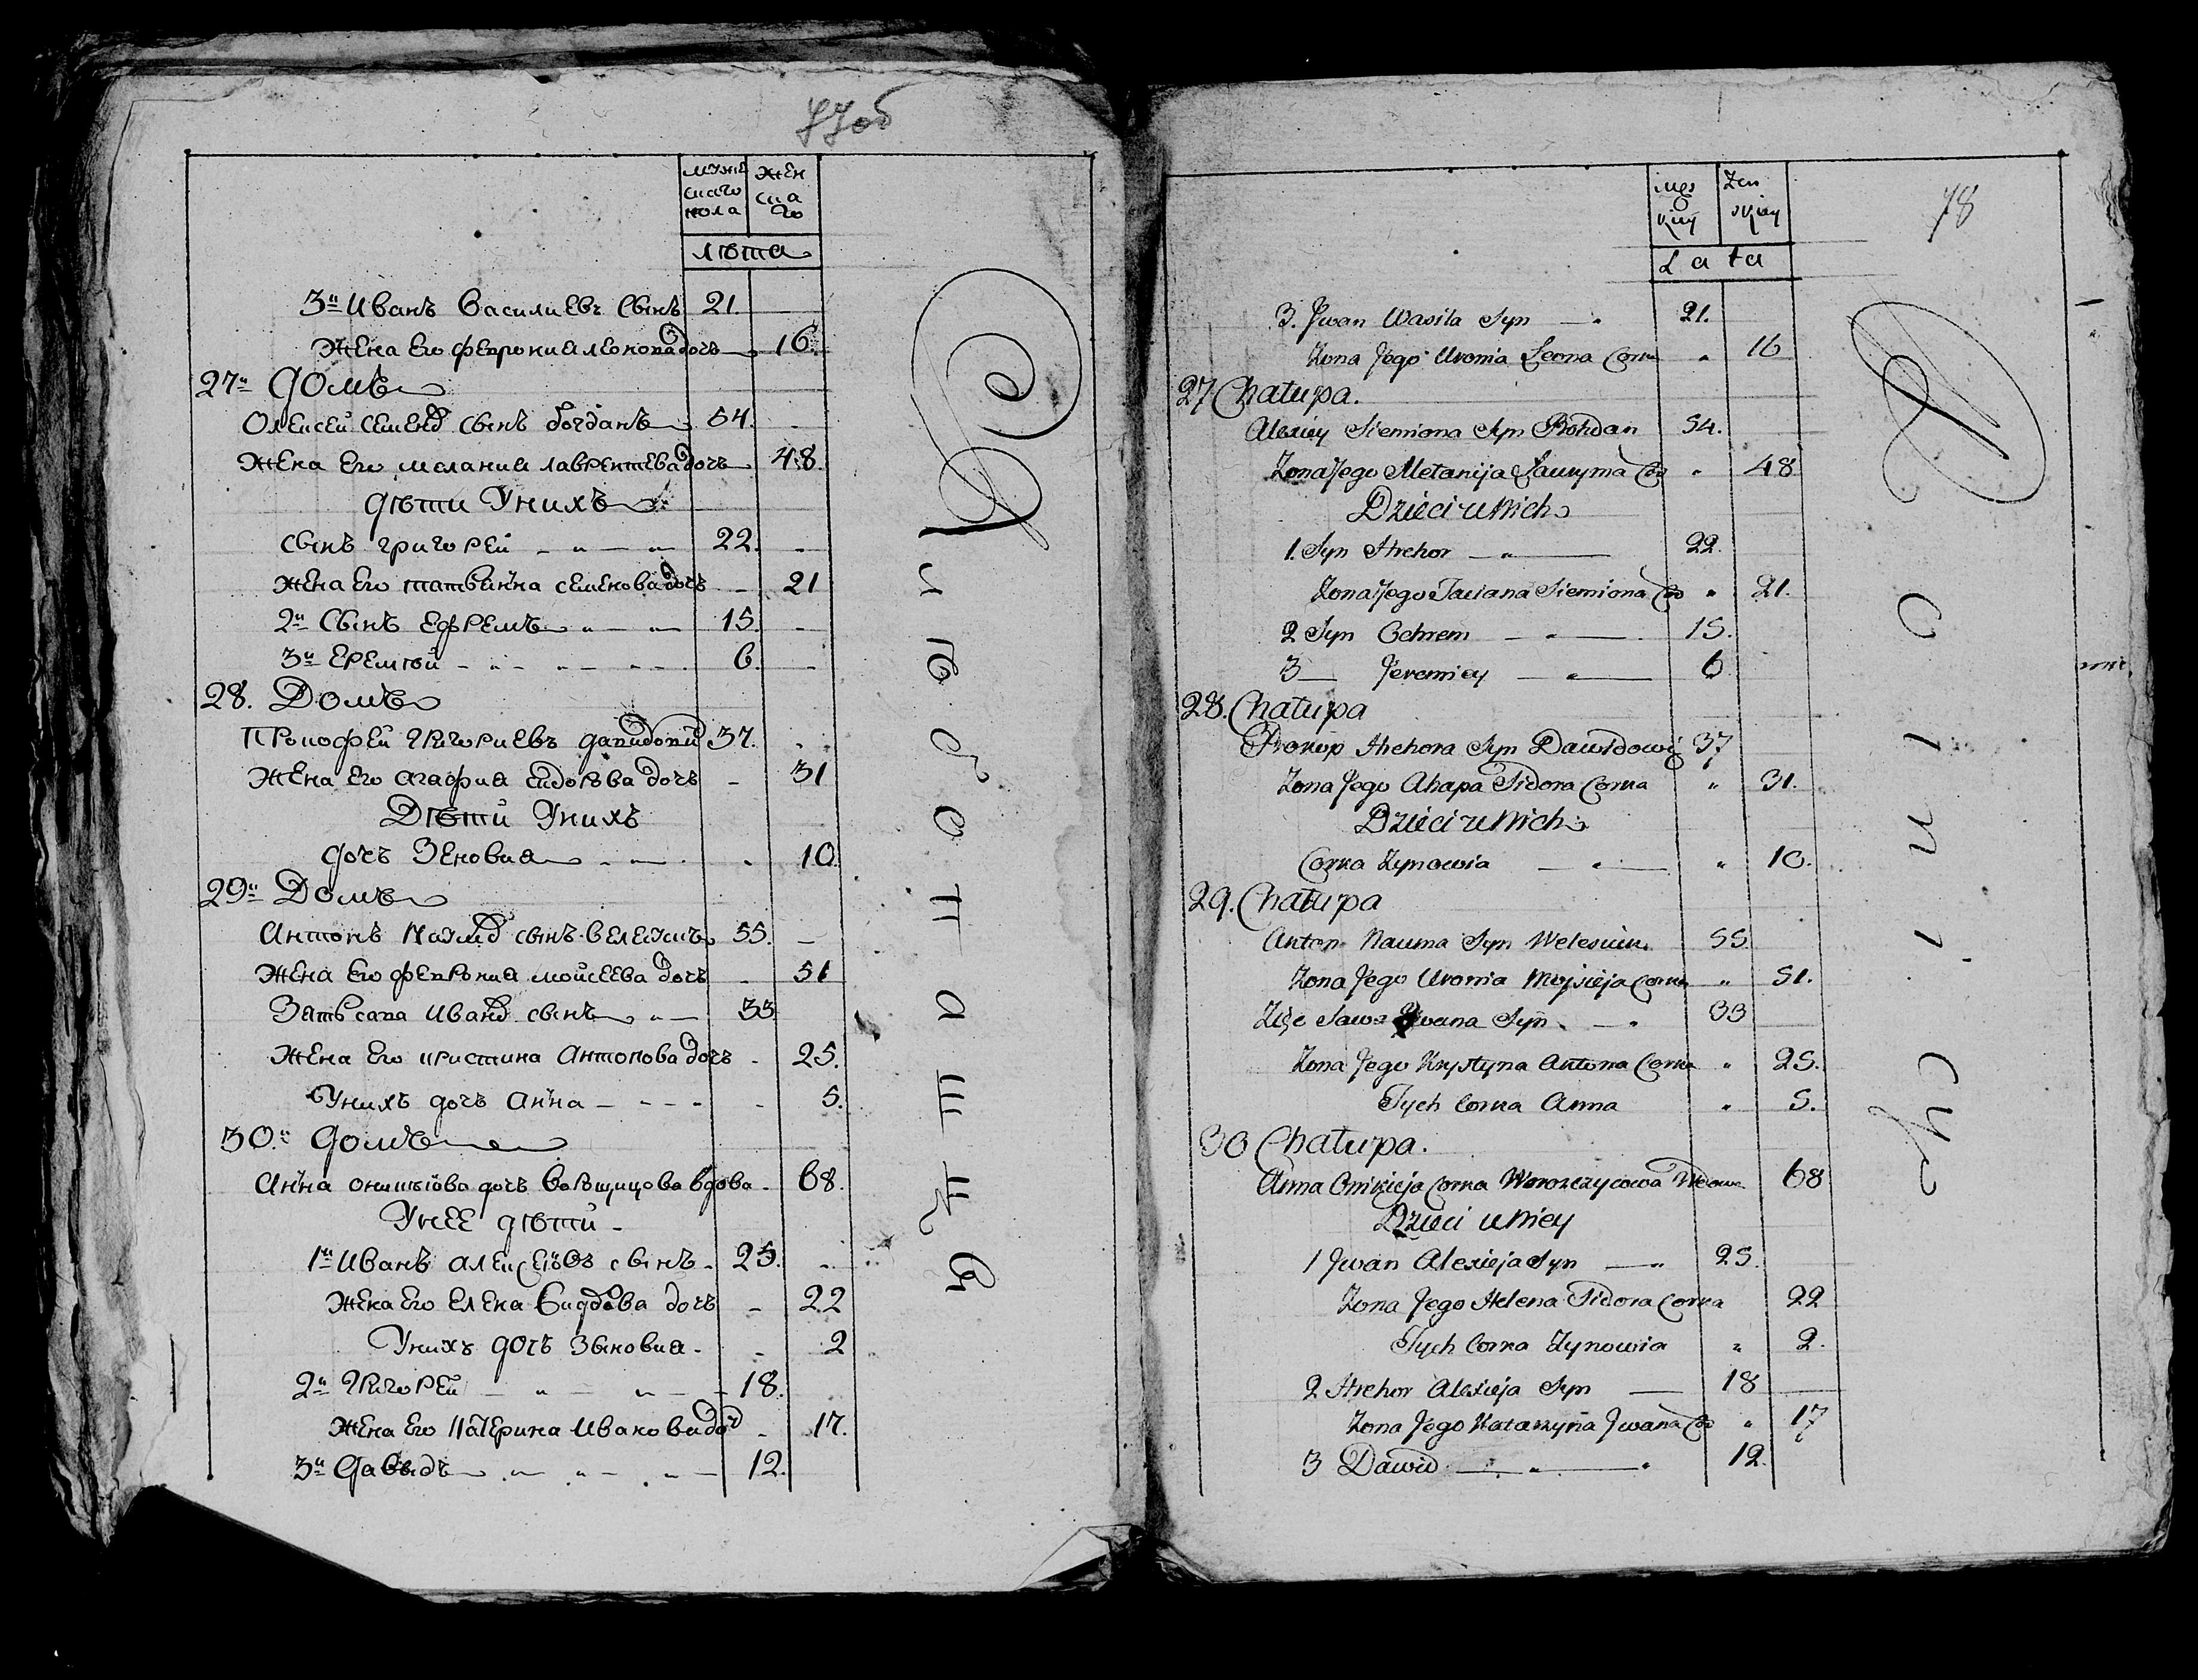 77об
мужескаго пола
женскаго
лѣта
3й Иванъ Василиевъ сынъ 21.
Жена его феврониа леонова дочь 16.
27й Домъ
Олексей семена сынъ богданъ 54.
Жена его мелания лаврентева дочь 48.
дѣти Унихъ
сынъ григорей 22.
жена его татьянна семенова дочь 21
2й Сынъ Ефремъ 15.
3й Еремѣй 6.
28. Домъ
Прокофей григориевъ давидович 37.
Жена его агафия сидорѣва дочь 31
Дѣти Унихъ
дочь Зеновия 10.
29й Домъ
Антонъ Наума сынъ Велесумъ 55.
Жена его феврония мойсеева дочь 51
Зять сава Ивана сынъ 33
Жена его кристина Антонова дочь 25.
Унихъ дочь Анна 5.
30.й домъ
Анна оникѣева дочь вдова 68.
Унее дѣти
1й Иванъ алексеѣвъ сынъ 25.
Жена его Елена Сидорова дочь 22
Унихъ дочь Зыновия 2
2й Григорей 18.
Жена его Катерина Иванова доч 17.
3й Давыдъ 12.
78
męs
kiey
żen
skiey
Lata
3. Jwan Wasila Syn 21.
Zona Jego Uronia Leona Corka 16
27 Chatupa.
Alexiey Siemiona Syn Bohdan 54.
Zona Jego Metanija Ławryna Cor 48
Dzieci u Nich
1. Syn Hrehor 22.
Zona Jego Taciana Siemiona Cor 21.
2 Syn Ochrem 15.
3 Jeremiey 6
28. Chatupa
Prokop Hrehora Syn Dawidowicz 37
Zona Jego Ahapa Sidora Corka 31.
Dzieci u Nich
Corka Zynowia 10.
29. Chatupa
Anton Nauma Syn Welesum 55
Zona Jego Uronia Mojsieja Corka 51.
Zięc Sawa Jwana Syn 33
Zona Jego Krystyna Antona Corka 25.
Tych Corka Anna 5.
30 Chatupa.
Anna Onikieja Corka Worozczycowa Wdowa 68
Dzieci u Niey
1 Jwan Alexieja Syn 25.
Zona Jego Helena Sidora Corka 22
Tych Corka Zynowia 2.
2 Hrehor Alexieja Syn 18
Zona Jego Katarzyna Jwana Cor 17
3 Dawid 12.